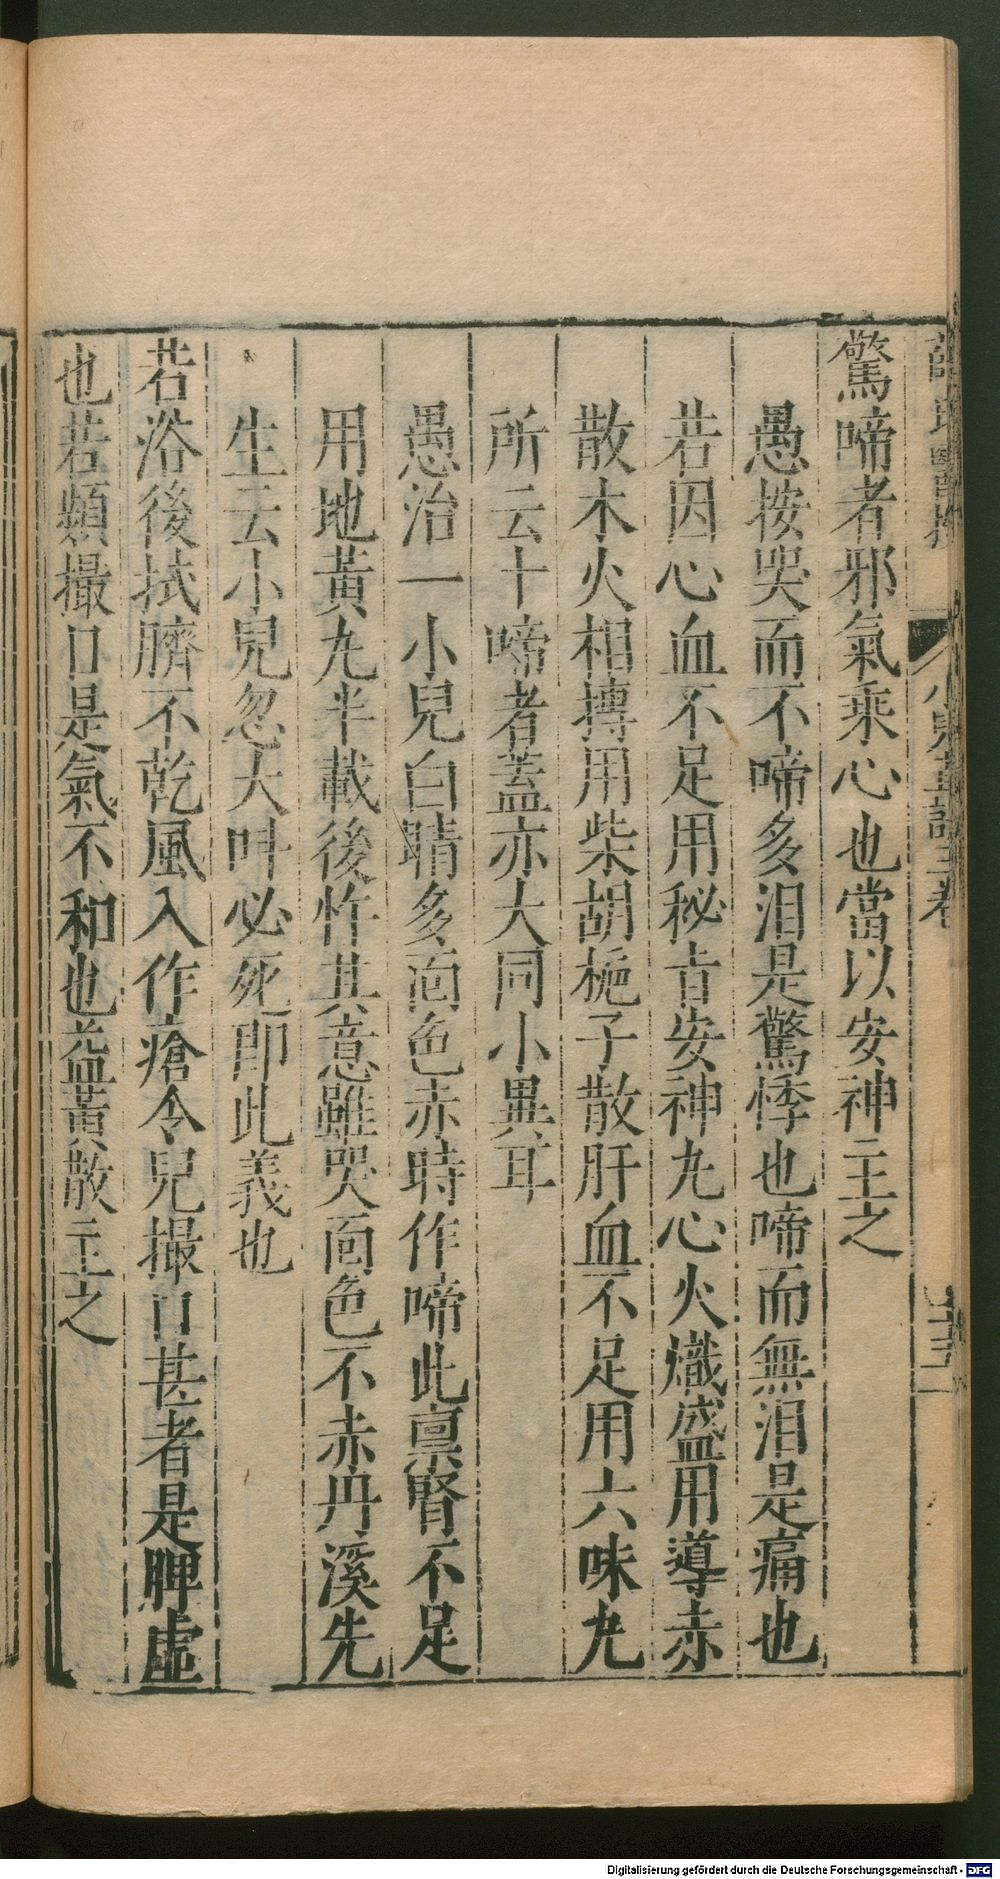 驚啼者邪氣乘心也當以安神主之
愚按哭而不啼多泪是驚悸也啼而無泪是痛也
若因心血不足用秘旨安神丸心火熾盛用導赤
散木火相搏用柴胡梔子散肝血不足用六味丸
所云十啼者蓋亦大同小異耳
愚治一小兒白睛多面色赤時作啼此禀腎不足
用地黃丸半載後忤其意雖哭面色不赤丹溪先
生云小兒忽大呌必死卽此義也
若浴後拭臍不乾風入作瘡令兒撮口甚者是脾虛
也若頻撮口是氣不和也益黃散主之
Digitalisierung gefördert durch die Deutsche Forschungsgemeinschaft - DFG